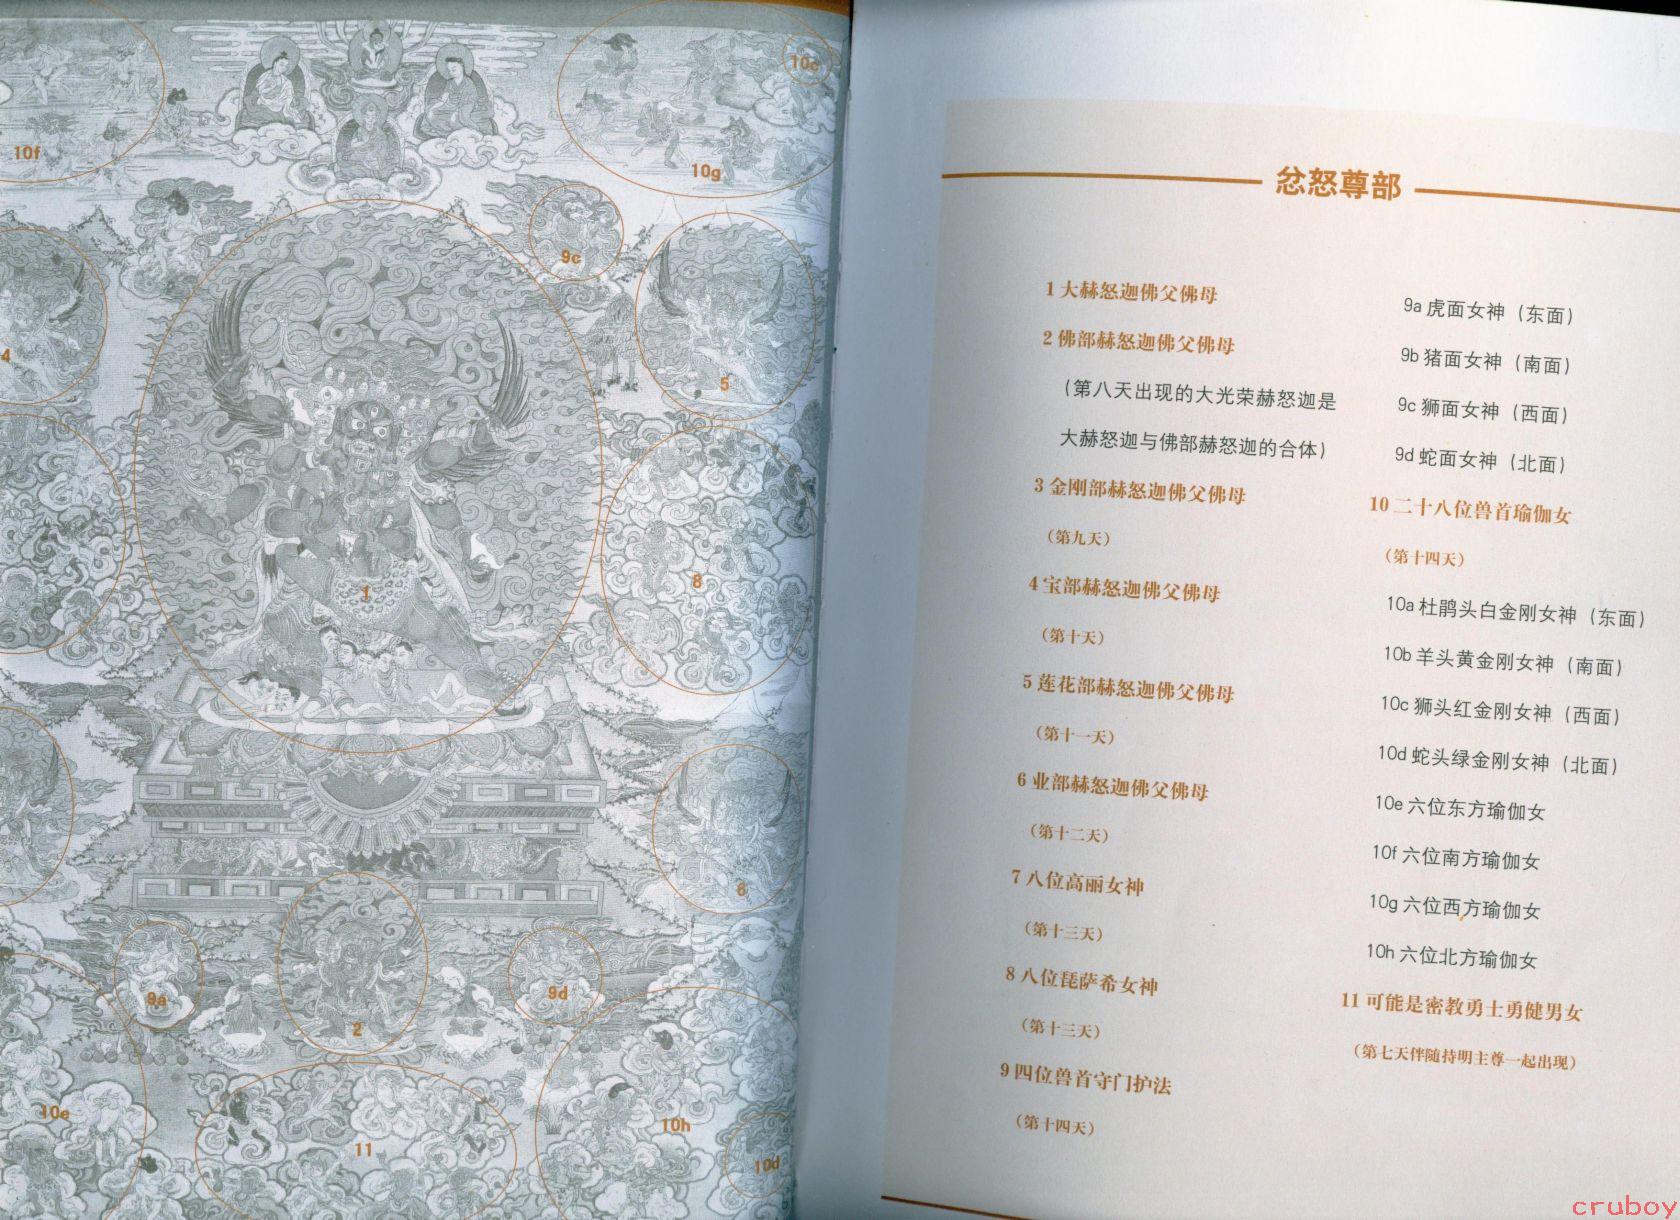 10f
10g
10c
9c
4
5
8
1
6
9a
2
9d
10e
11
10h
10d
忿怒尊部
1 大赫怒迦佛父佛母
2 佛部赫怒迦佛父佛母
（第八天出现的大光荣赫怒迦是
大赫怒迦与佛部赫怒迦的合体）
3 金刚部赫怒迦佛父佛母
（第九天）
4 宝部赫怒迦佛父佛母
（第十天）
5 莲花部赫怒迦佛父佛母
（第十一天）
6 业部赫怒迦佛父佛母
（第十二天）
7 八位高丽女神
（第十三天）
8 八位琵萨希女神
（第十三天）
9 四位兽首守门护法
（第十四天）
9a 虎面女神（东面）
9b 猪面女神（南面）
9c 狮面女神（西面）
9d 蛇面女神（北面）
10 二十八位兽首瑜伽女
（第十四天）
10a 杜鹃头白金刚女神（东面）
10b 羊头黄金刚女神（南面）
10c 狮头红金刚女神（西面）
10d 蛇头绿金刚女神（北面）
10e 六位东方瑜伽女
10f 六位南方瑜伽女
10g 六位西方瑜伽女
10h 六位北方瑜伽女
11 可能是密教勇士勇健男女
（第七天伴随持明主尊一起出现）
cruboy